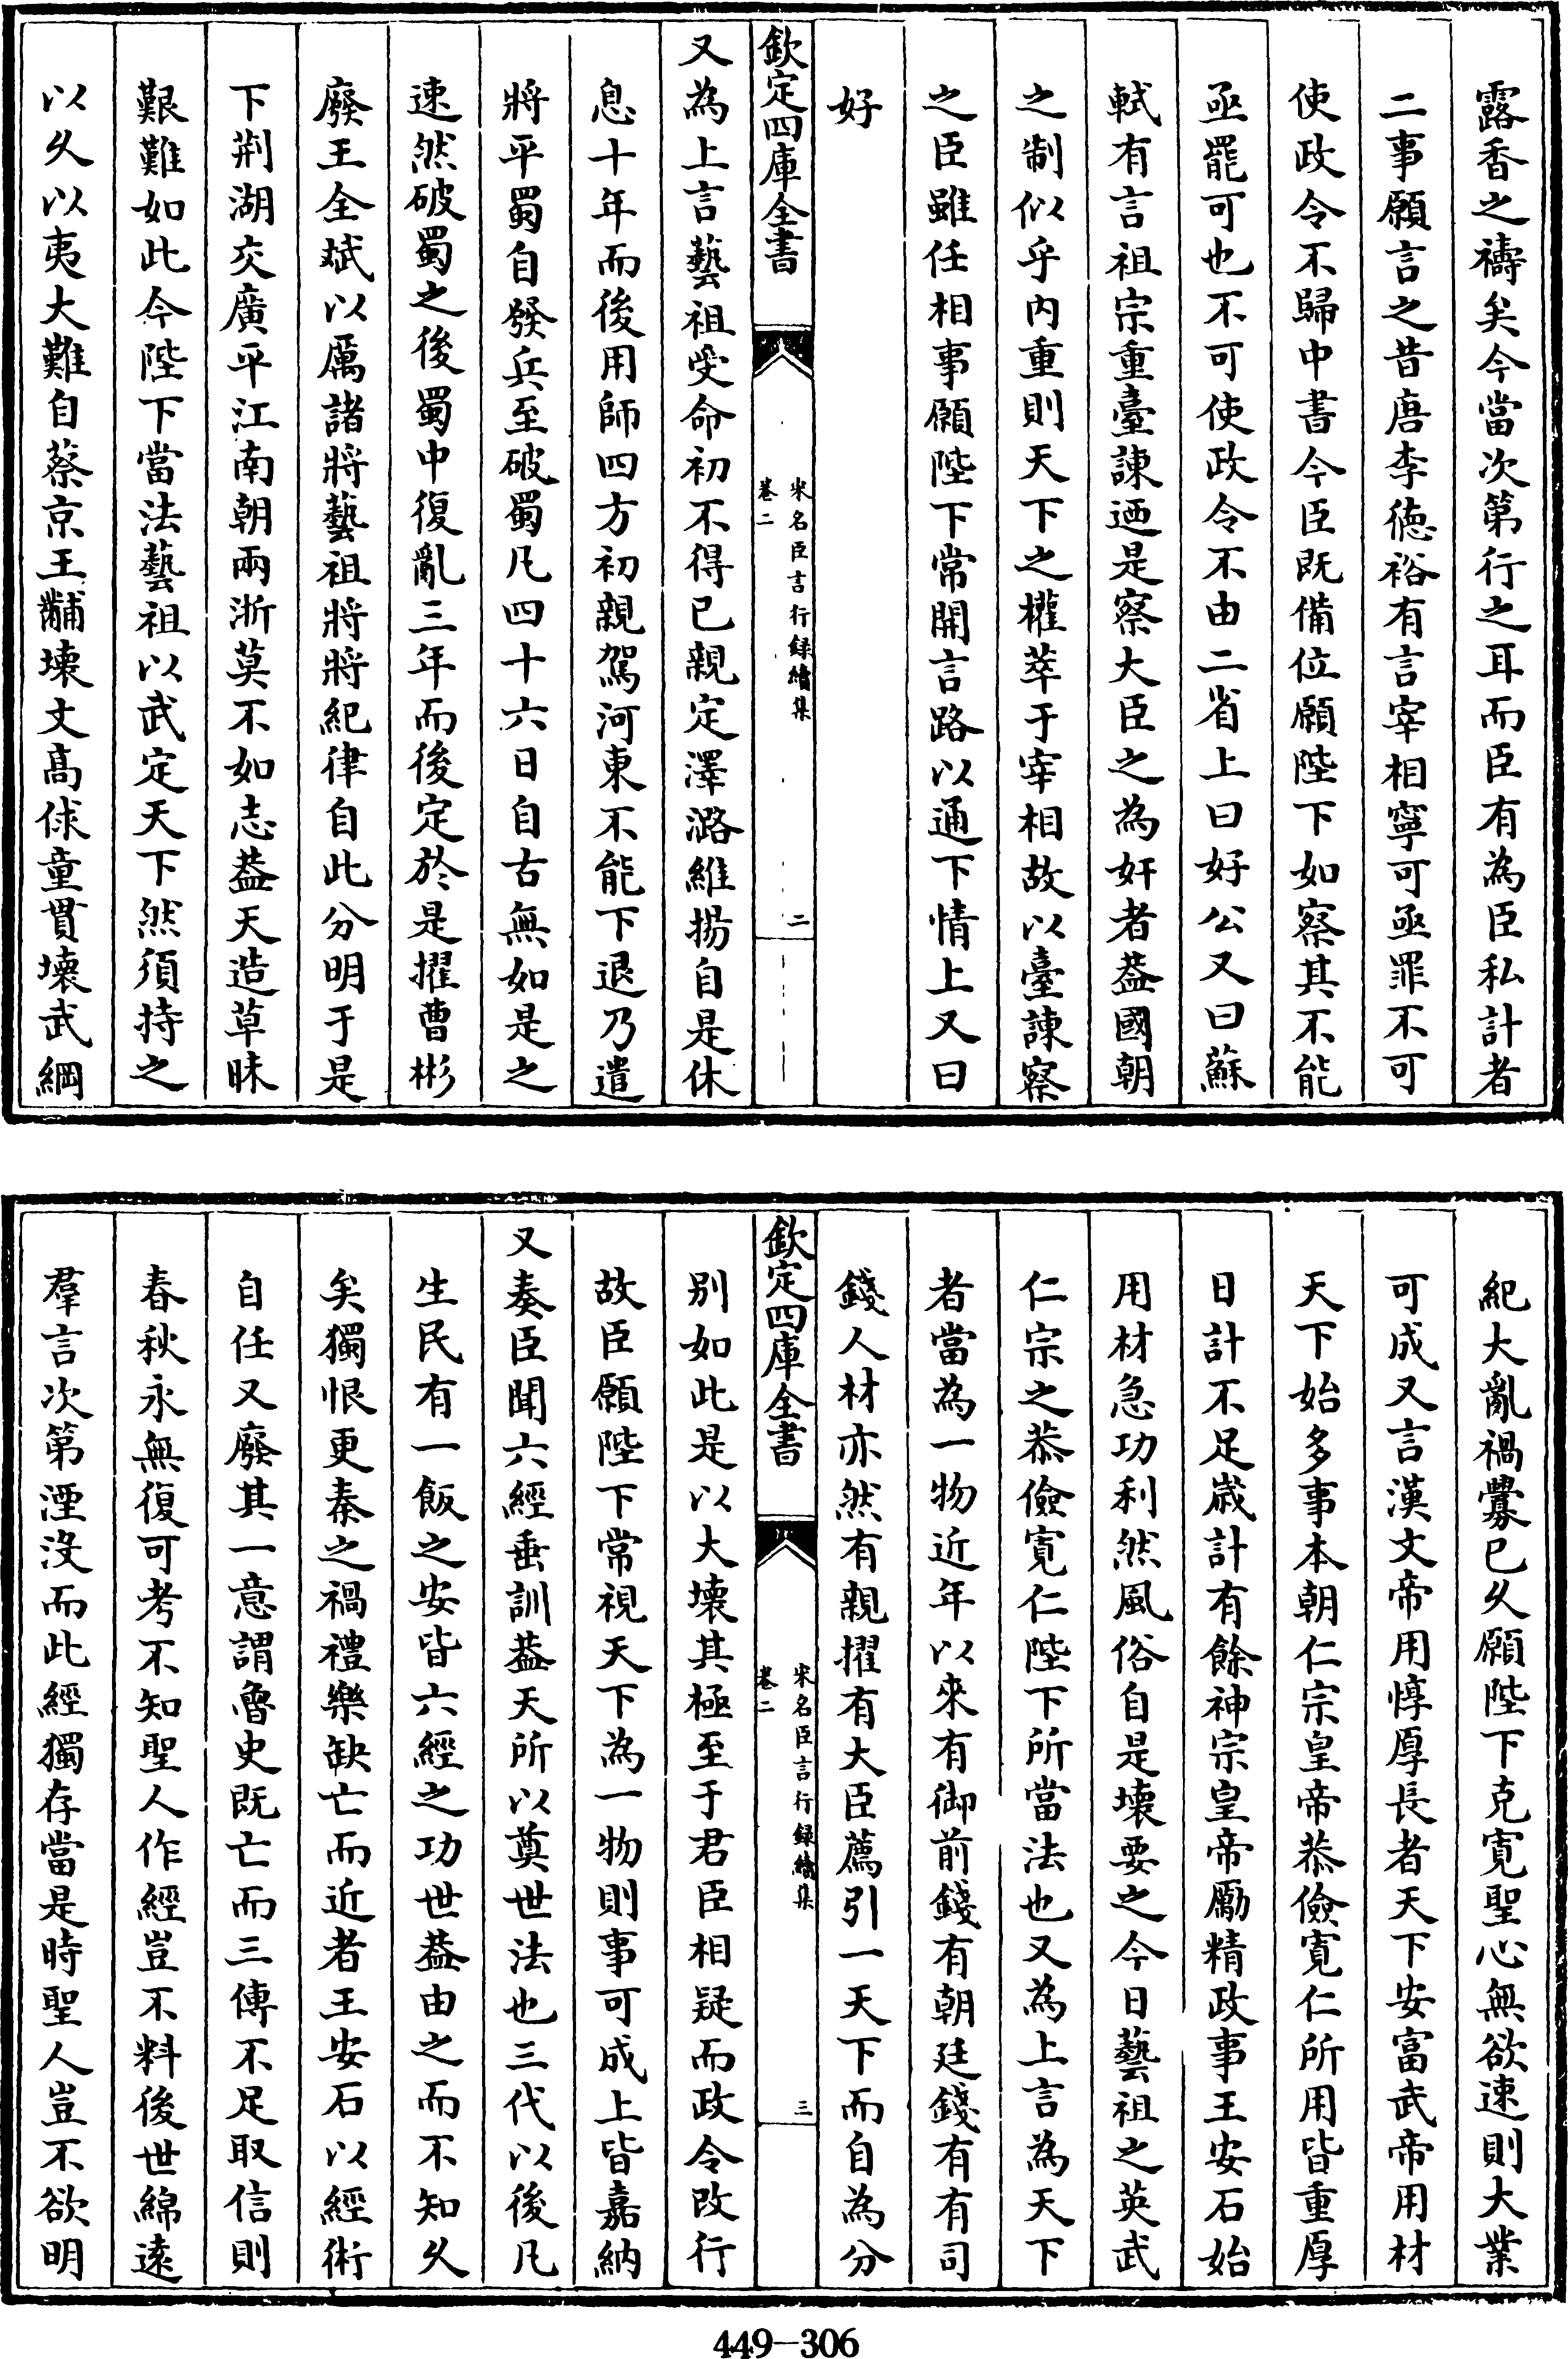 露香之禱矣今當次第行之耳而臣有為臣私計者
二事願言之昔唐李德裕有言宰相寧可亟罪不可
使政令不歸中書今臣既備位願陛下如察其不能
亟罷可也不可使政令不由二省上曰好公又曰蘇
軾有言祖宗重臺諫迺是察大臣之為奸者葢國朝
之制似乎内重則天下之權萃于宰相故以臺諫察
之臣雖任相事願陛下常開言路以通下情上又曰
好
欽定四庫全書
宋名臣言行録續集
卷二
二
又為上言藝祖受命初不得已親定澤潞維揚自是休
息十年而後用師四方初親駕河東不能下退乃遣
將平蜀自發兵至破蜀凡四十六日自古無如是之
速然破蜀之後蜀中復亂三年而後定於是擢曹彬
廢王全斌以厲諸將藝祖將將紀律自此分明于是
下荆湖交廣平江南朝兩浙莫不如志葢天造草昧
艱難如此今陛下當法藝祖以武定天下然須持之
以久以夷大難自蔡京王黼壊文高俅童貫壊武綱
紀大亂禍釁已久願陛下克寛聖心無欲速則大業
可成又言漢文帝用惇厚長者天下安富武帝用材
天下始多事本朝仁宗皇帝恭儉寛仁所用皆重厚
日計不足歳計有餘神宗皇帝勵精政事王安石始
用材急功利然風俗自是壊要之今日藝祖之英武
仁宗之恭儉寛仁陛下所當法也又為上言為天下
者當為一物近年以來有御前錢有朝廷錢有有司
錢人材亦然有親擢有大臣薦引一天下而自為分
欽定四庫全書
宋名臣言行録續集
卷二
三
别如此是以大壊其極至于君臣相疑而政令改行
故臣願陛下常視天下為一物則事可成上皆嘉納
又奏臣聞六經垂訓葢天所以奠世法也三代以後凡
生民有一飯之安皆六經之功世葢由之而不知久
矣獨恨更秦之禍禮樂缺亡而近者王安石以經術
自任又廢其一意謂魯史既亡而三傳不足取信則
春秋永無復可考不知聖人作經豈不料後世綿遠
羣言次第湮沒而此經獨存當是時聖人豈不欲明
449-306